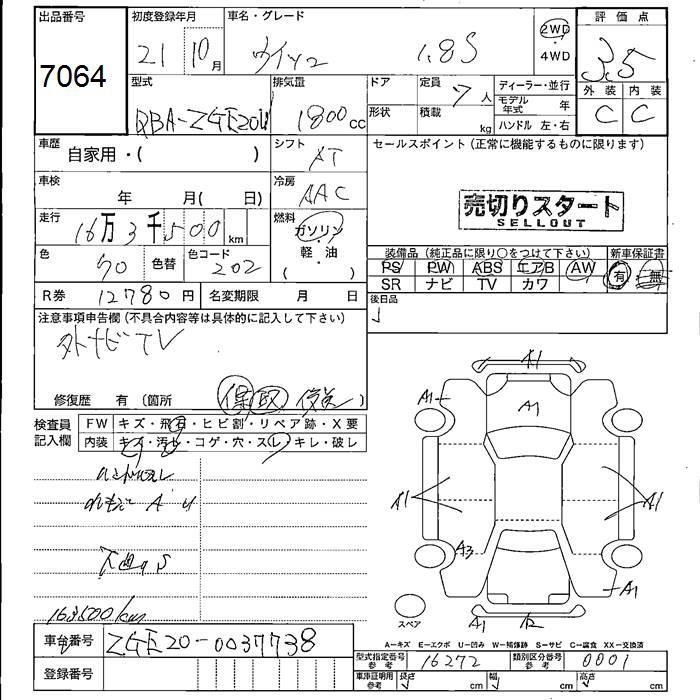 出品番号 初度登録年月 車名・グレード 評価点
7064 21 10月 ウイッシュ 1.8S 2WD・4WD 3.5
型式 排気量 ドア 定員 ディーラー・並行 外装 内装
DBA-ZGE20W 1800cc 7人 モデル年式 年 C C
形状 積載 kg ハンドル 左・右
車歴 自家用・( ) シフト AT セールスポイント(正常に機能するものに限ります)
車検 年 月( 日) 冷房 AAC
売切りスタート
SELLOUT
走行 16万3千500km 燃料 ガソリン・軽油
色 クロ 色替 色コード 202
装備品(純正品に限り○をつけて下さい) 新車保証書
PS PW ABS エアB AW 有・無
SR ナビ TV カワ
R券 12780円 名変期限 月 日 後日品
注意事項申告欄(不具合内容等は具体的に記入して下さい)
外ナビTV
修復歴 有(箇所 保 取 )
検査員記入欄 FW キズ・飛石・ヒビ割・リペア跡・X要
内装 キズ・汚レ・コゲ・穴・スレ・キレ・破レ
A1
A1
A1
A1 A1
A3
A1
スペア
A1
163500km
A-キズ E-エクボ U-凹み W-補修跡 S-サビ C-腐食 XX-交換済
車台番号 ZGE20-0037738
型式指定番号 参考 16272 類別区分番号 参考 0001
登録番号
車庫証明用 参考 長さ cm 幅 cm 高さ cm